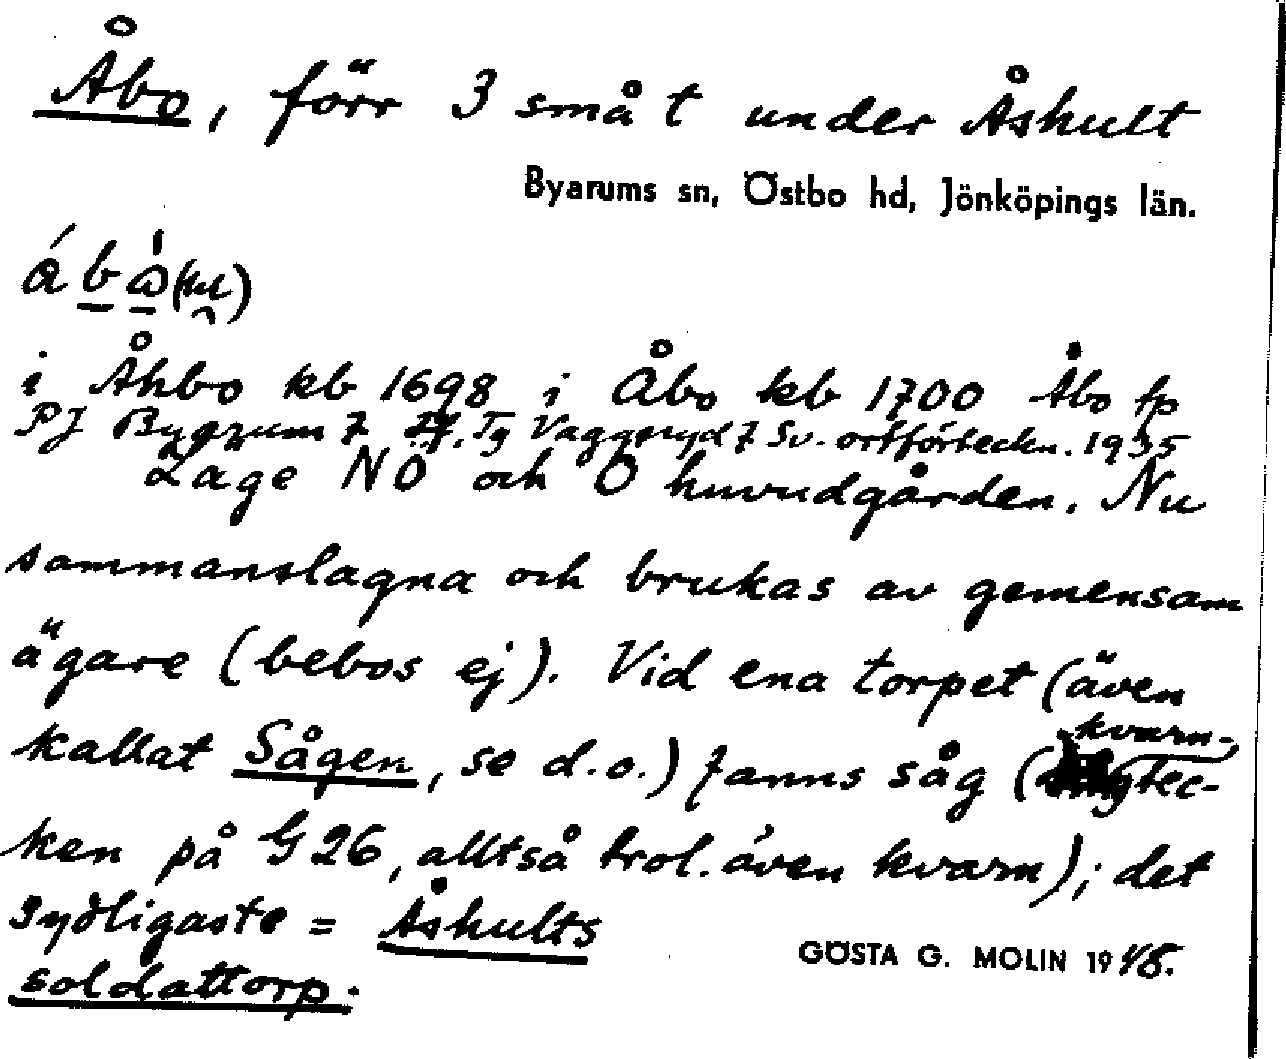 Åbo, förr 3 små t under Åshult
Byarums sn, Östbo hd, Jönköpings län.
i Åhbo kb 1698 i Åbo kb 1700 Åbo fp
PJ Byarum 7 Tg Vaggeryd 7 Sv. ortförteckn. 1935
Läge NÖ och Ö huvudgården. Nu
sammanslagna och brukas av gemensam
ägare (bebos ej). Vid ena torpet (även
kallat Sågen, se d.o.) fanns såg (kvarn-
tec-
ken på G 26, alltså trol. även kvarn); det
sydligaste = Åshults
soldattorp.
GÖSTA G. MOLIN 1948.